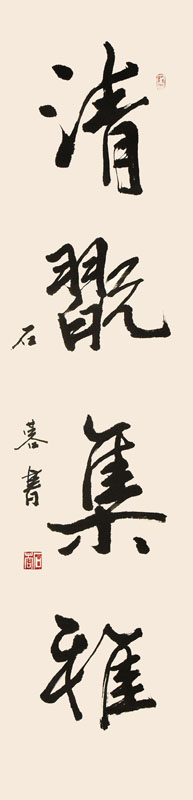 清翫集雅
石書